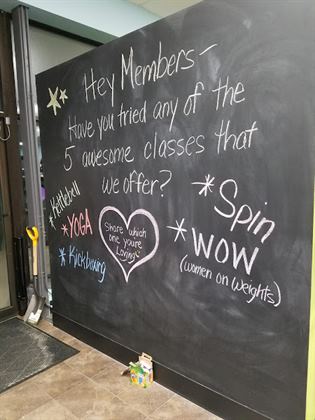 Hey Members-
Have you tried any of the
5 awesome classes that
we offer?
*Kettleball
*YOGA
*Kickboxing
Share which
one you're
Loving
*Spin
*WOW
(women on weights)